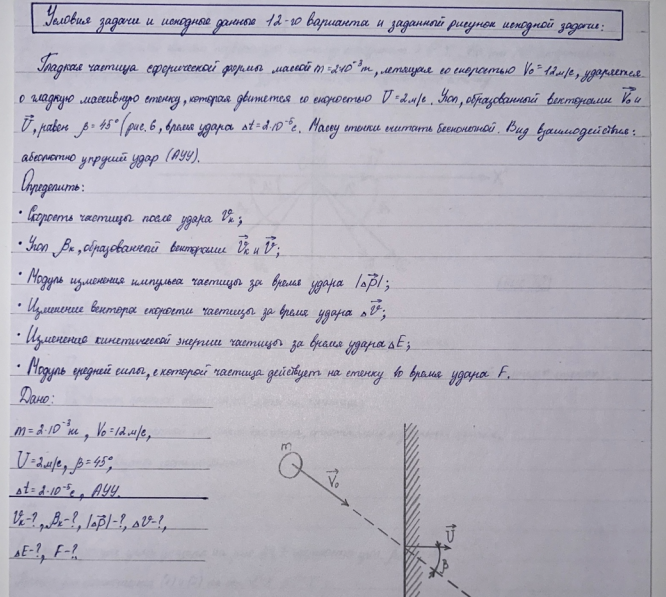 Условия задачи и исходные данные 12-го варианта и заданный рисунок исходной задачи:
Гладкая частица сферической формы массой m=2·10⁻³ кг, летящая со скоростью V₀=12 м/с, ударяется
о гладкую массивную стенку, которая движется со скоростью U=2 м/с. Угол, образованный векторами V₀ и
U, равен β=45° (рис. 6, время удара Δt=2·10⁻⁵ с. Массу стенки считать бесконечной. Вид взаимодействия:
абсолютно упругий удар (АУУ).
Определить:
• Скорость частицы после удара Vк;
• Угол βк, образованный векторами Vк и V;
• Модуль изменения импульса частицы за время удара |Δp|;
• Изменение вектора скорости частицы за время удара ΔV;
• Изменение кинетической энергии частицы за время удара ΔE;
• Модуль средней силы, с которой частица действует на стенку во время удара F.
Дано:
m=2·10⁻³ кг, V₀=12 м/с,
U=2 м/с, β=45°,
Δt=2·10⁻⁵ с, АУУ.
Vк-?, βк-?, |Δp|-?, ΔV-?,
ΔE-?, F-?
m
V₀
U
β